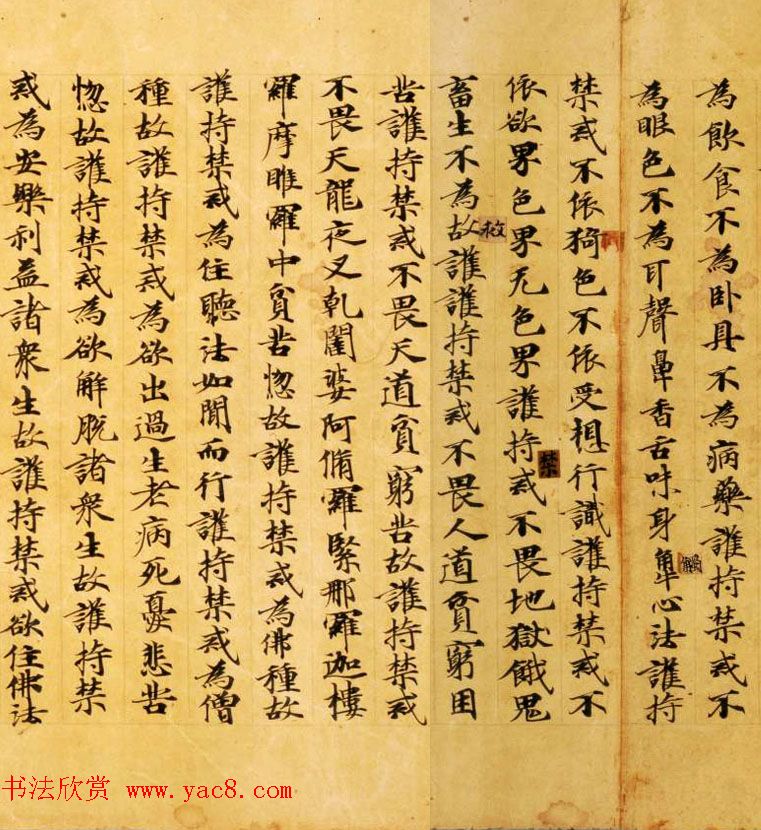 為飲食不為卧具不為病藥護持禁戒不
為眼色不為耳聲鼻香舌味身心法護持
禁戒不依猗色不依受想行識護持禁戒不
依欲界色界无色界護持禁戒不畏地獄餓鬼
畜生不為故護護持禁戒不畏人道貧窮困
苦護持禁戒不畏天道貧窮苦故護持禁戒
不畏天龍夜叉乹闥婆阿脩羅緊那羅迦樓
羅摩睺羅中貧苦惚故護持禁戒為佛種故
護持禁戒為住聽法如聞而行護持禁戒為僧
種故護持禁戒為欲出過生老病死憂悲苦
惚故護持禁戒為欲解脫諸衆生故護持禁
戒為安樂利益諸衆生故護持禁戒欲住佛法
书法欣赏 www.yac8.com